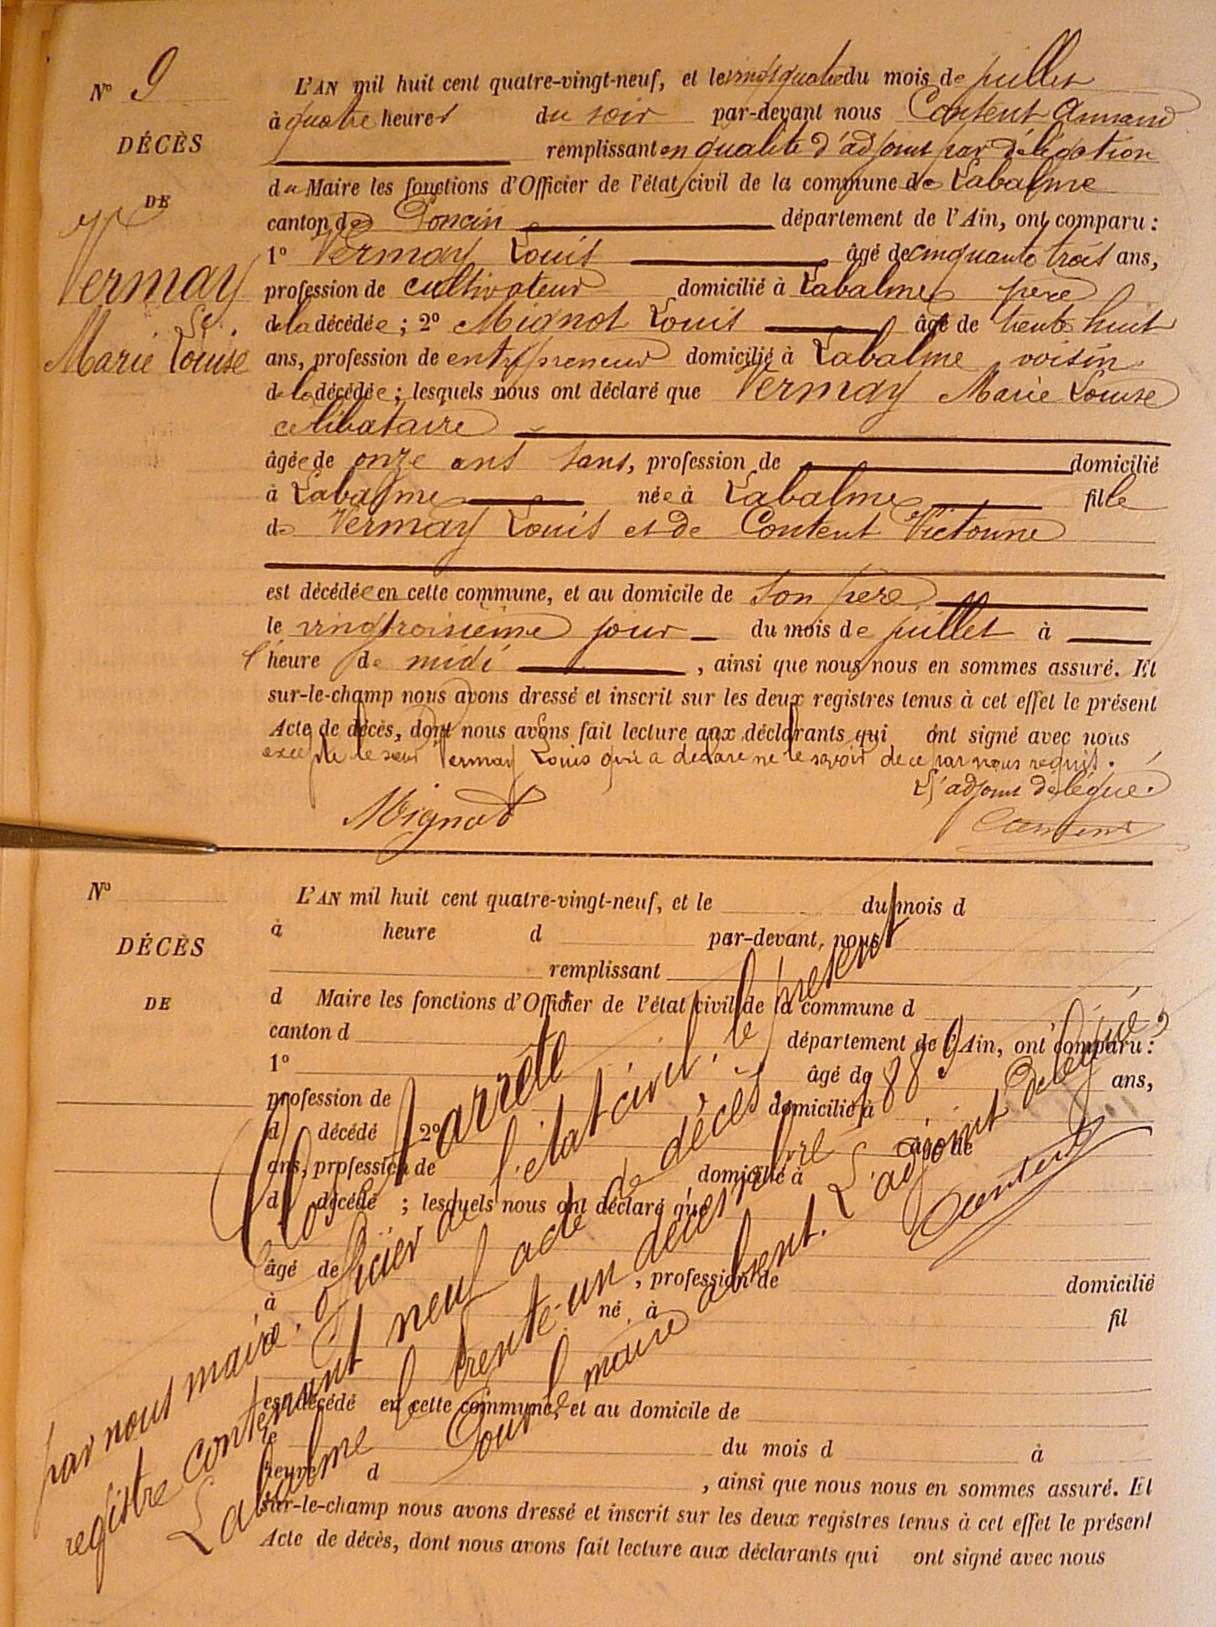 N° 9
DÉCÈS
DE
Vermay
Marie Louise
L'AN mil huit cent quatre-vingt-neuf, et le vingt quatre du mois de juillet
à quatre heures du soir par-devant nous Content Armand
remplissant en qualité d'adjoint par délégation
du Maire les fonctions d'Officier de l'état civil de la commune de Labalme
canton de Poncin département de l'Ain, ont comparu :
1° Vermay Louis âgé de cinquante trois ans,
profession de cultivateur domicilié à Labalme père
de la décédée ; 2° Mignot Louis âgé de trente huit
ans, profession de entrepreneur domicilié à Labalme voisin
de la décédée ; lesquels nous ont déclaré que Vermay Marie Louise
celibataire
âgée de onze ans sans, profession de domicilié
à Labalme née à Labalme fille
de Vermay Louis et de Content Victorine
est décédée en cette commune, et au domicile de son père
le vingtroisième jour du mois de juillet à
l'heure de midi , ainsi que nous nous en sommes assuré. Et
sur-le-champ nous avons dressé et inscrit sur les deux registres tenus à cet effet le présent
Acte de décès, dont nous avons fait lecture aux déclarants qui ont signé avec nous
excepté le sieur Vermay Louis qui a déclaré ne le savoir de ce par nous requis.
L'adjoint délégué.
Mignot Content
N°
DÉCÈS
DE
L'AN mil huit cent quatre-vingt-neuf, et le du mois d
à heure d par-devant nous
remplissant
d Maire les fonctions d'Officier de l'état civil de la commune d
canton d département de l'Ain, ont comparu :
1° âgé de ans,
profession de domicilié à
d décédé 2° âgé de
ans, profession de domicilié à
d décédé ; lesquels nous ont déclaré que
âgé de , profession de domicilié
à né à fil
est décédé en cette commune, et au domicile de
le du mois d à
heure d , ainsi que nous nous en sommes assuré. Et
sur-le-champ nous avons dressé et inscrit sur les deux registres tenus à cet effet le présent
Acte de décès, dont nous avons fait lecture aux déclarants qui ont signé avec nous
Clos et arrêté
par nous maire, officier de l'état civil, le présent
registre contenant neuf acte de décès.
Labalme le trente-un décembre 1889
Pour le maire absent. L'adjoint délégué,
Content